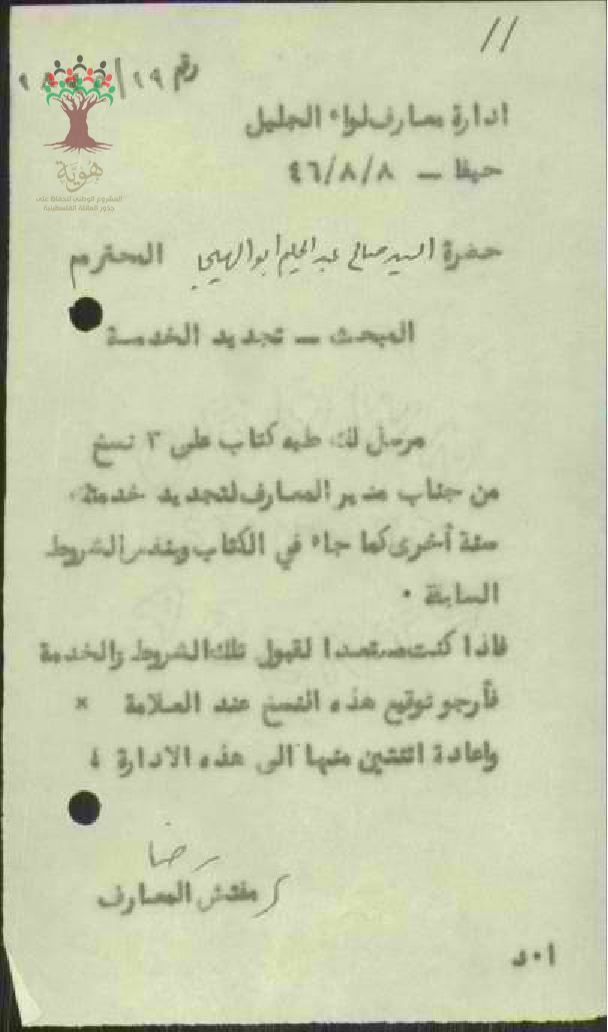 //
رقم ١٩/
هوية
المشروع الوطني للحفاظ على
جذور العائلة الفلسطينية
ادارة معارف لواء الجليل
حيفا — ٤٦/٨/٨
حضرة السيد صالح عبد الحليم أبو الهيجا المحترم
المبحث — تجديد الخدمة
مرسل لك طيه كتاب على ٣ نسخ
من جناب مدير المعارف لتجديد خدمتك
سنة أخرى كما جاء في الكتاب وبنفس الشروط
السابقة ٠
فاذا كنت مستعدا لقبول تلك الشروط والخدمة
فأرجو توقيع هذه النسخ عند العلامة ×
واعادة اثنتين منها الى هذه الادارة
رضا
مفتش المعارف
ا٠د